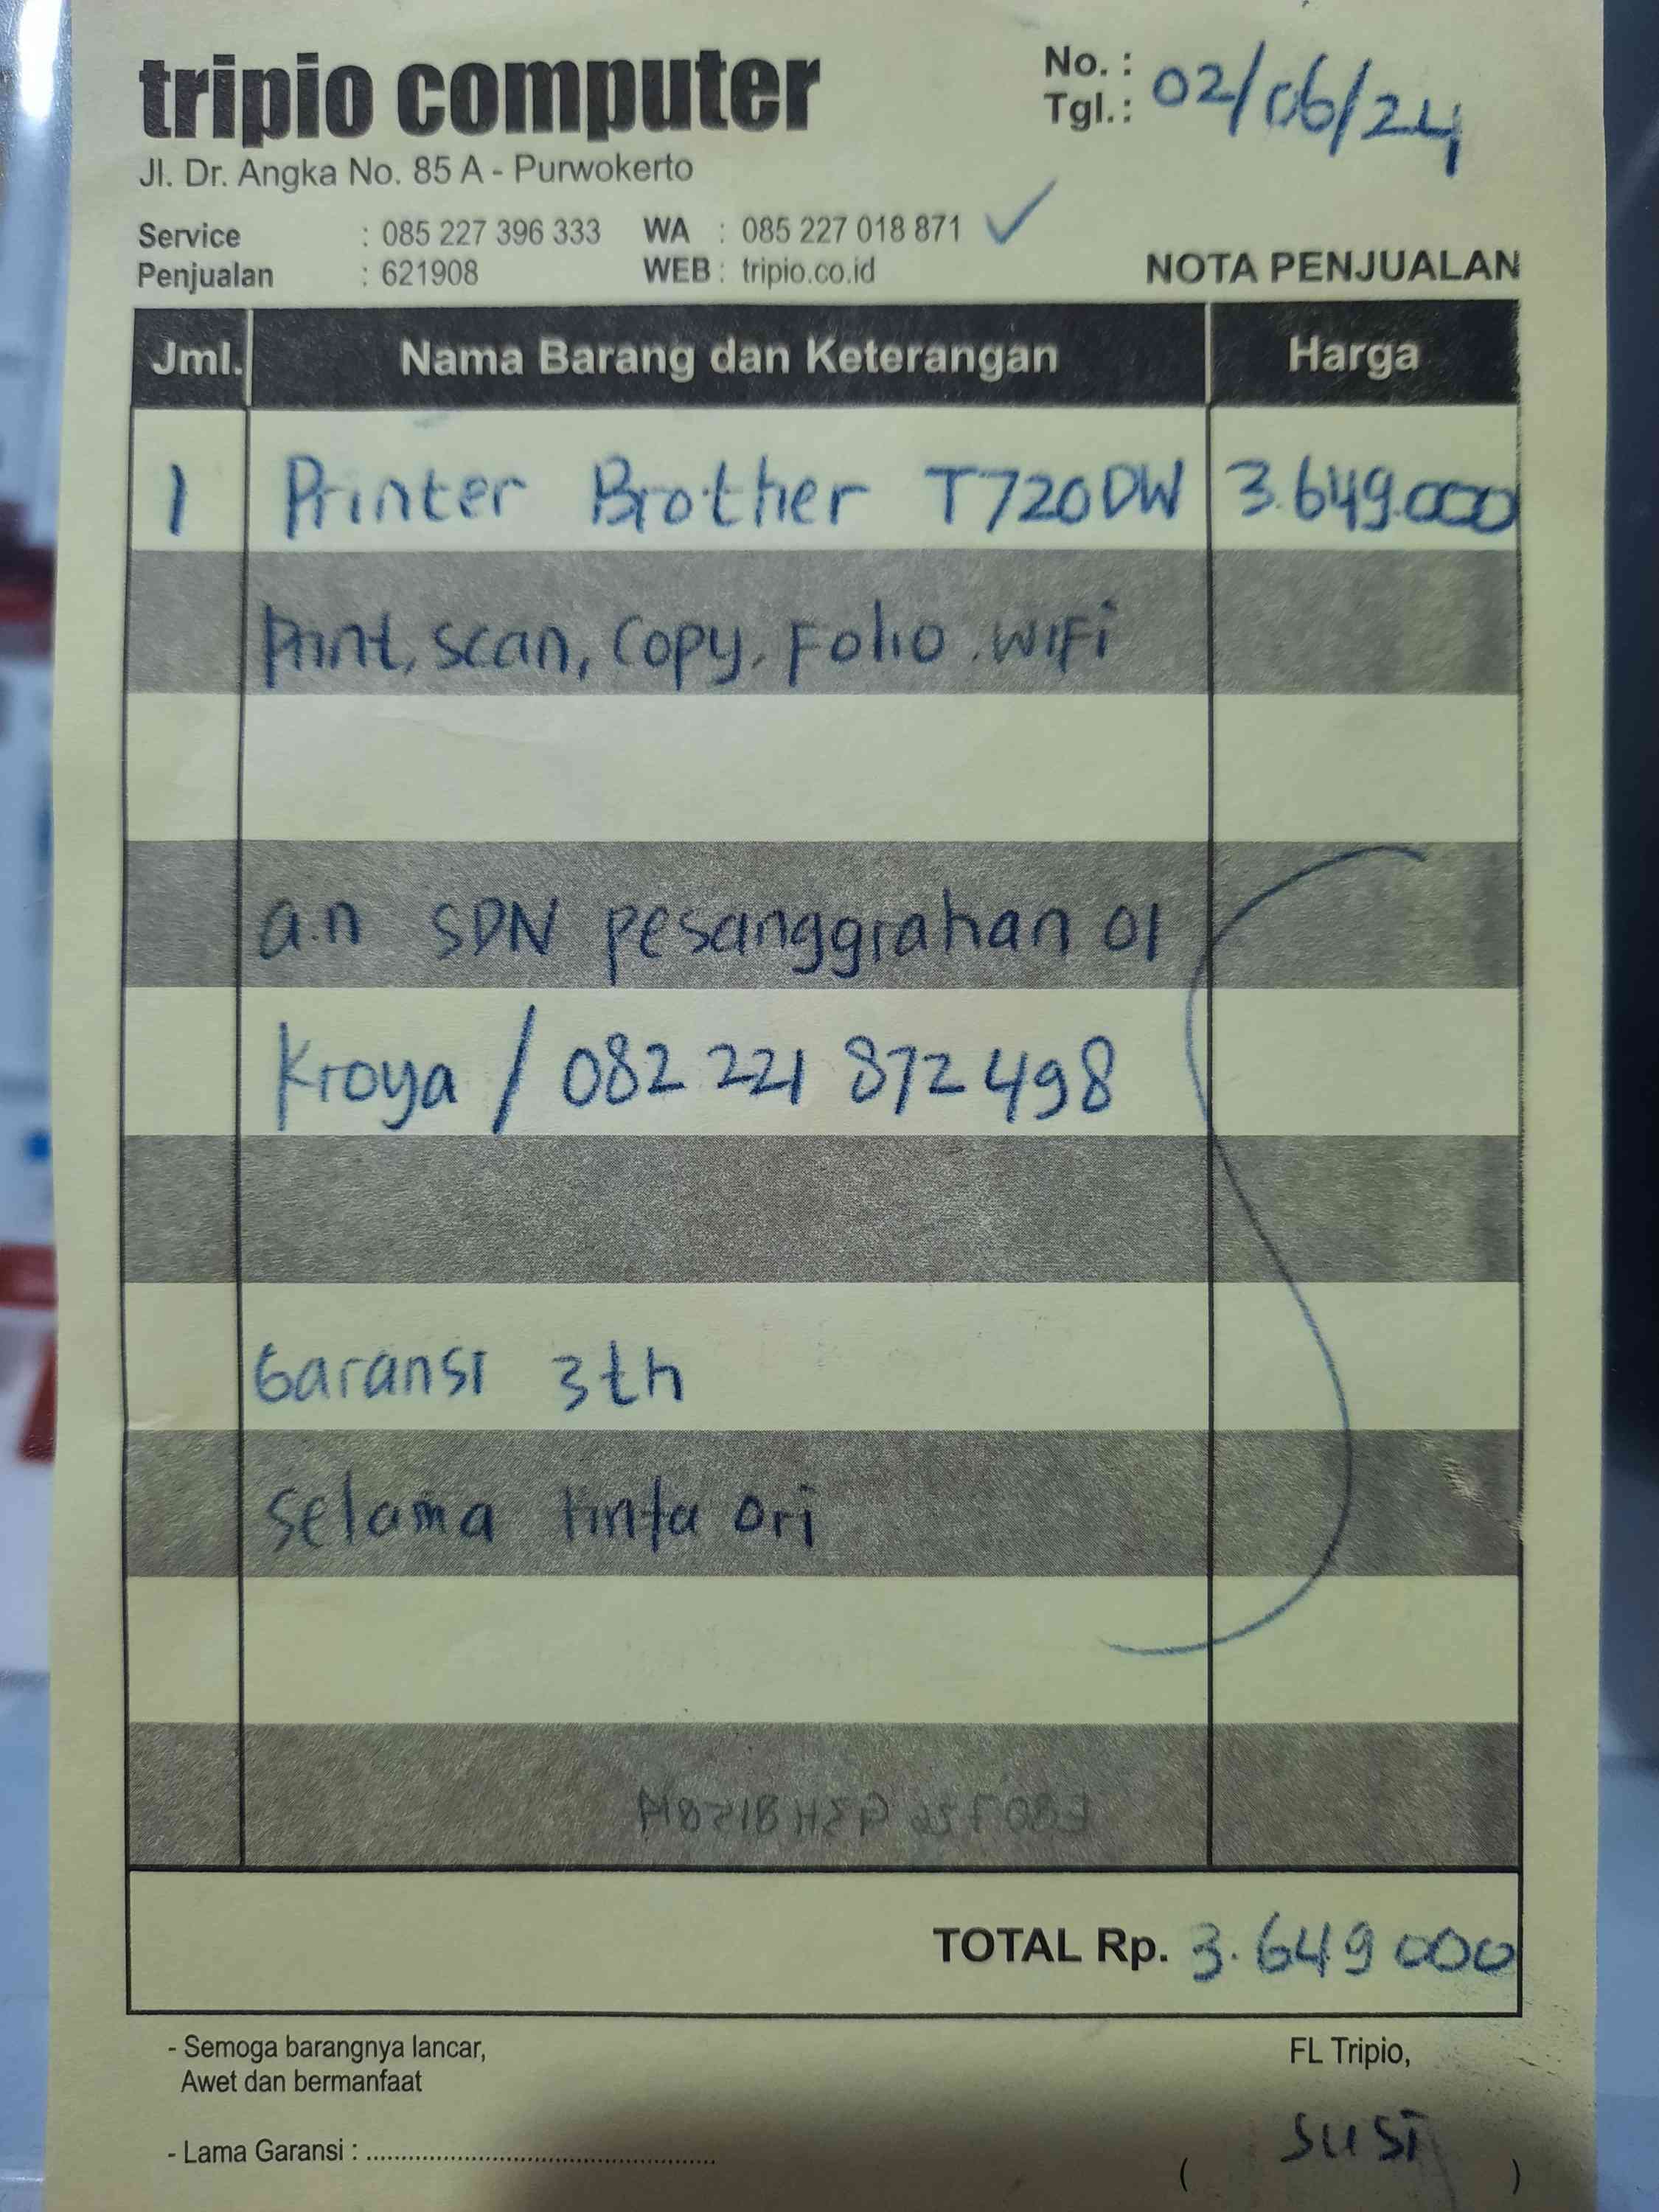 tripio computer
No. :
Tgl. : 02/06/24
Jl. Dr. Angka No. 85 A - Purwokerto
Service : 085 227 396 333 WA : 085 227 018 871 ✓
Penjualan : 621908 WEB : tripio.co.id
NOTA PENJUALAN
Jml. Nama Barang dan Keterangan Harga
1 Printer Brother T720DW 3.649.000
Print, scan, Copy, Folio, WIFI
a.n SDN pesanggrahan 01
Kroya / 082 221 872 498
Garansi 3th
selama tinta ori
TOTAL Rp. 3.649 000
- Semoga barangnya lancar,
Awet dan bermanfaat
FL Tripio,
- Lama Garansi : ..........
( susi )